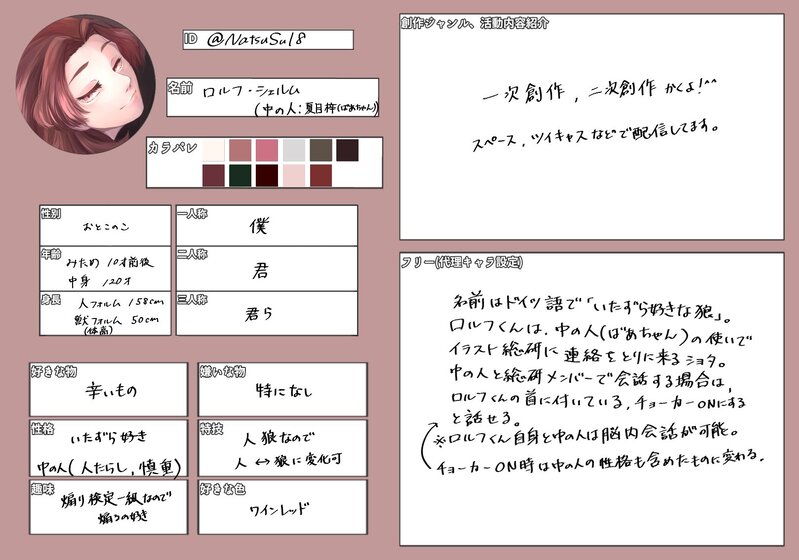 ID @NatsuSu18
名前 ロルフ・シェルム
(中の人:夏目柊(ばあちゃん))
カラパレ
性別
おとこのこ
一人称
僕
年齢
みため 10才前後
中身 120才
二人称
君
身長
人フォルム 158cm
獣フォルム 50cm
(体高)
三人称
君ら
好きな物
辛いもの
嫌いな物
特になし
性格
いたずら好き
中の人(人たらし,慎重)
特技
人狼なので
人 ↔ 狼に変化可
趣味
煽り検定一級なので
煽るの好き
好きな色
ワインレッド
創作ジャンル、活動内容紹介
一次創作,二次創作かくよ!^^
スペース,ツイキャスなどで配信してます。
フリー(代理キャラ設定)
名前はドイツ語で「いたずら好きな狼」。
ロルフくんは,中の人(ばあちゃん)の使いで
イラスト総研に連絡をとりに来るショタ。
中の人と総研メンバーで会話する場合は,
ロルフくんの首に付いている,チョーカーONにする
と話せる。
※ロルフくん自身と中の人は脳内会話が可能。
チョーカーON時は中の人の性格も含めたものに変わる.